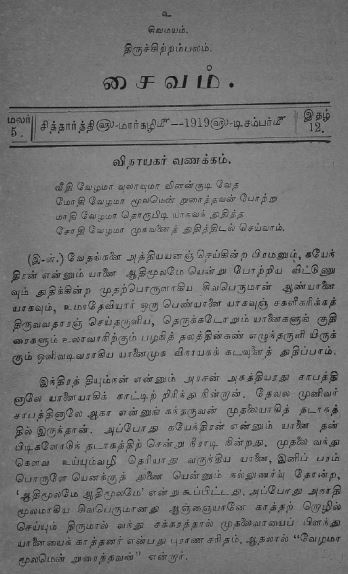 உ
சிவமயம்.
திருச்சிற்றம்பலம்.
சைவம்.
மலர் 5. சித்தார்த்தி௵-மார்கழி௴—1919௵-டிசம்பர்௴ இதழ் 12.
விநாயகர் வணக்கம்.
வீதி வேழமா வலாவுமா விளன்குடி வேத
மோதி வேழமா மூலமென் றுரைத்தவன் போற்று
மாதி வேழமா தொருபிடி யாகவக் துதித்த
சோதி வேழமா முகவனைத் துதித்திடல் செய்வாம்.
(இ-ள்.) வேதங்களை அத்தியயனஞ் செய்கின்ற பிரமனும், கயேந்
திரன் என்னும் யானை ஆதிமூலமே யென்று போற்றிய விட்டுணு
வும் துதிக்கின்ற முதற்பொருளாகிய சிவபெருமான் ஆண்யானை
யாகவும், உமாதேவியார் ஒரு பெண்யானை யாகவுஞ் சகளிகரிக்கத்
திருவவதாரஞ் செய்தருளிய, தெருக்கடோறும் யானைகளும் குதி
ரைகளும் உலாவாநிற்கும் பழகித் தலத்தின்கண் எழுந்தருளி யிருக்
கும் ஒளிவடிவராகிய யானைமுக விநாயகக் கடவுளைத் துதிப்பாம்.
இந்திரத் தியும்நன் என்னும் அரசன் அகத்தியரது சாபத்தி
னாலே யானையாகிக் காட்டிற் றிரிந்து நின்றான். தேவல முனிவர்
சாபத்தினாலே ஆகா என்னுங் கந்தருவன் முதலையாகித் தடாகத்
தில் இருந்தான். அப்போது கயேந்திரன் என்னும் யானை தன்
பிடிகளோடுக் தடாகத்திற் சென்று நீராடி நின்றது. முதலை வந்து
கௌவ உய்யும்வழி தெரியாது வருந்திய யானை, இனிப் பரம்
பொருளே யெனக்குத் துணை யென்னும் நல்லுணர்வு தோன்ற,
'ஆதிமூலமே ஆதிமூலமே' என்று கூப்பிட்டது. அப்போது அநாதி
மூலமாகிய சிவபெருமானது ஆஞ்ஞையானே காத்தற் றொழில்
செய்யும் திருமால் வந்து சக்கரத்தால் முதலைவாயைப் பிளந்து
யானையைக் காத்தனர் என்பது புராண சரிதம். ஆதலால் "வேழமா
மூலமென் றுரைத்தவன்" என்றார்.